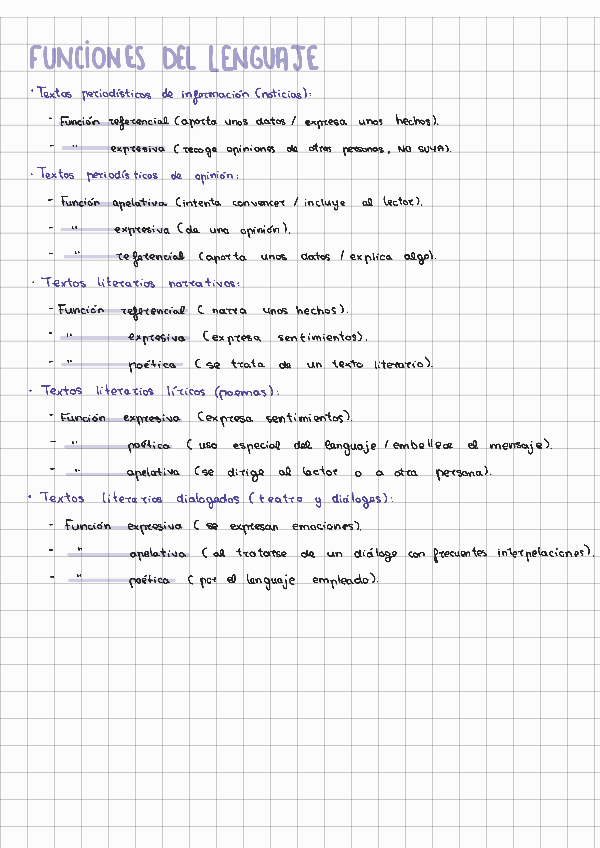 FUNCIONES DEL LENGUAJE
· Textos periodísticos de información (noticias):
- Función referencial (aporta unos datos / expresa unos hechos).
- " expresiva (recoge opiniones de otras personas, NO SUYA).
· Textos periodísticos de opinión:
- Función apelativa (intenta convencer / incluye al lector).
- " expresiva (da una opinión).
- " referencial (aporta unos datos / explica algo).
· Textos literarios narrativos:
- Función referencial (narra unos hechos).
- " expresiva (expresa sentimientos).
- " poética (se trata de un texto literario).
· Textos literarios líricos (poemas):
- Función expresiva (expresa sentimientos).
- " poética (uso especial del lenguaje / embellece el mensaje).
- " apelativa (se dirige al lector o a otra persona).
· Textos literarios dialogados (teatro y diálogos):
- Función expresiva (se expresan emociones).
- " apelativa (al tratarse de un diálogo con frecuentes interpelaciones).
- " poética (por el lenguaje empleado).